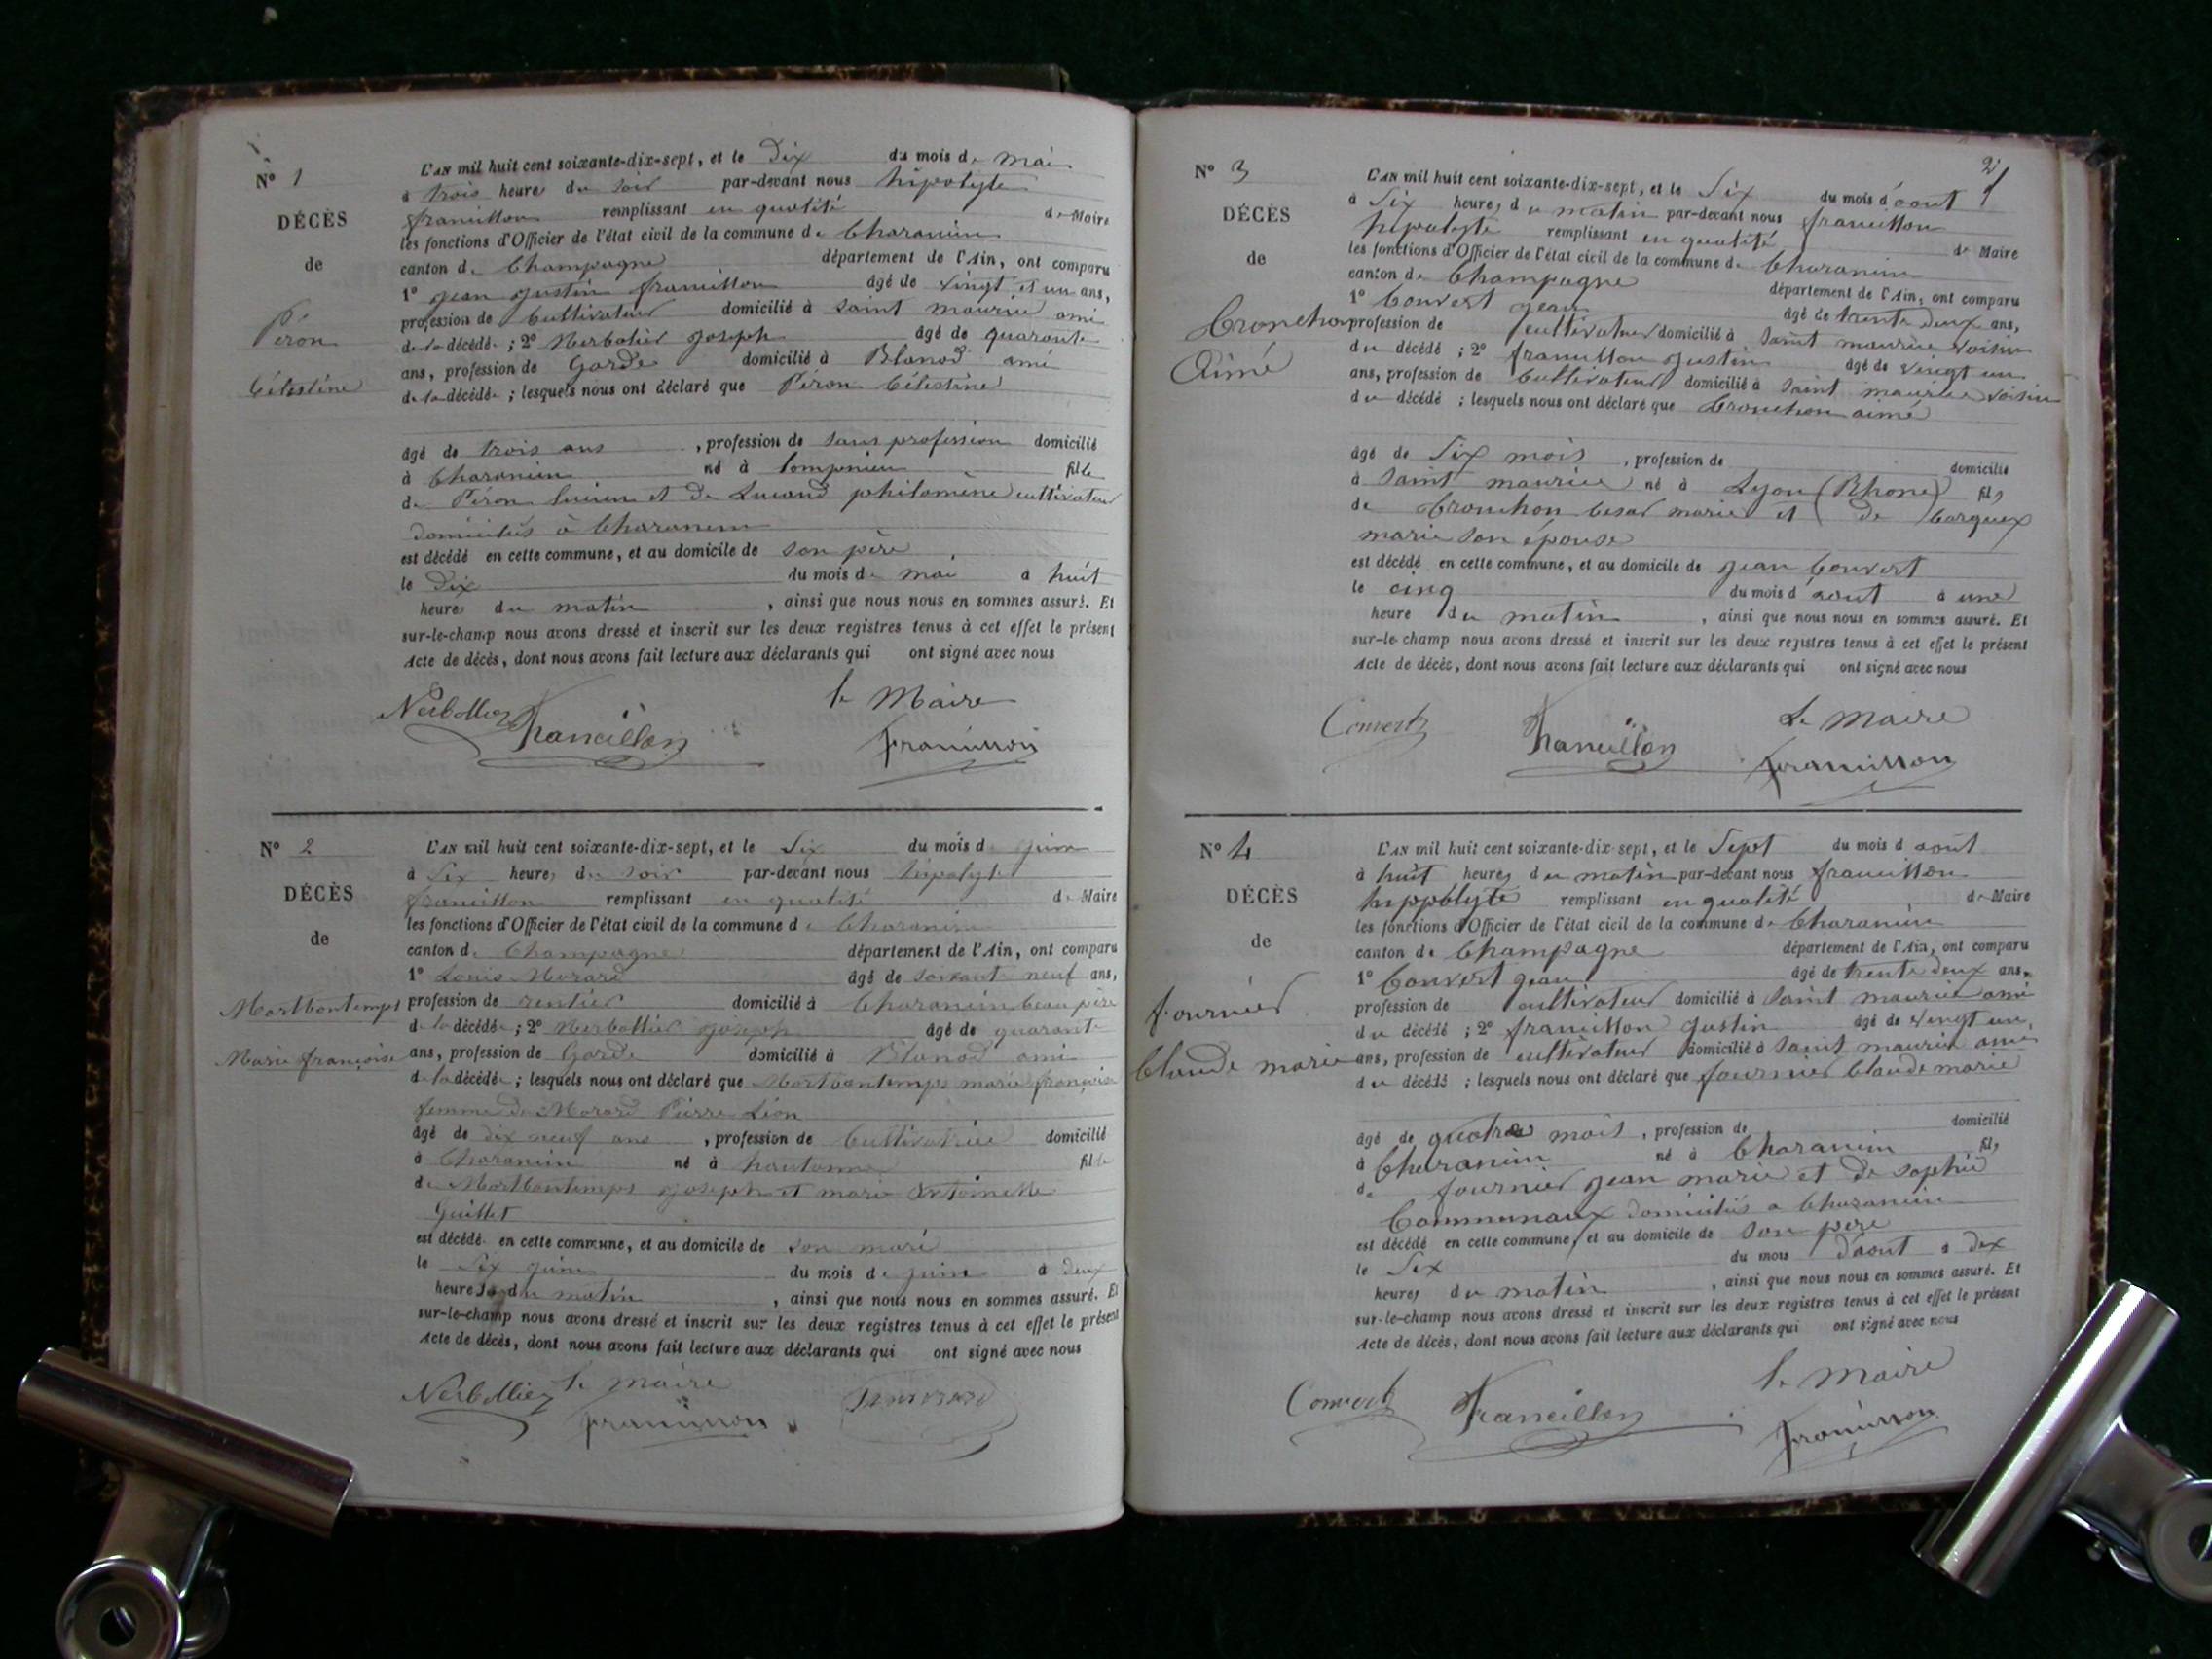 N° 1
DÉCÈS
de
Péron
Célestine
L'AN mil huit cent soixante-dix-sept, et le Dix du mois de Mai
à trois heures du soir par-devant nous hipolyte
francillon remplissant en qualité de Maire
les fonctions d'Officier de l'état civil de la commune de Charancin
canton de Champagne département de l'Ain, ont comparu
1° jean justin francillon âgé de vingt et un ans,
profession de Cultivateur domicilié à saint maurice ami
de la décédée ; 2° Nerbolier joseph âgé de quarante
ans, profession de Garde domicilié à Blanod ami
de la décédée ; lesquels nous ont déclaré que Péron Célestine
âgé de trois ans , profession de sans profession domicilié
à Charancin né à Lompnieu fille
de Péron lucien et de Lucand philomène cultivateur
domiciliés à Charancin
est décédé en cette commune, et au domicile de son père
le Dix du mois de mai à huit
heures du matin , ainsi que nous nous en sommes assuré. Et
sur-le-champ nous avons dressé et inscrit sur les deux registres tenus à cet effet le présent
Acte de décès, dont nous avons fait lecture aux déclarants qui ont signé avec nous
le Maire
Nerbollier francillon francillon
N° 2
DÉCÈS
de
Martbontemps
Marie françoise
L'AN mil huit cent soixante-dix-sept, et le Six du mois de juin
à Six heures du soir par-devant nous hipolyte
francillon remplissant en qualité de Maire
les fonctions d'Officier de l'état civil de la commune de Charancin
canton de Champagne département de l'Ain, ont comparu
1° Louis Morard âgé de soixante neuf ans,
profession de rentier domicilié à Charancin beau père
de la décédée ; 2° Nerbollier joseph âgé de quarante
ans, profession de Garde domicilié à Blanod ami
de la décédée ; lesquels nous ont déclaré que Martbontemps marie françoise
femme de Morard Pierre Léon
âgé de dix neuf ans , profession de Cultivatrice domicilié
à Charancin né à hautonne fille
de Martbontemps joseph et marie Antoinette
Guillet
est décédé en cette commune, et au domicile de son mari
le Six juin du mois de juin à deux
heures du matin , ainsi que nous nous en sommes assuré. Et
sur-le-champ nous avons dressé et inscrit sur les deux registres tenus à cet effet le présent
Acte de décès, dont nous avons fait lecture aux déclarants qui ont signé avec nous
Nerbollier le maire
francillon
2
N° 3
DÉCÈS
de
Cronchon
Aimé
L'AN mil huit cent soixante-dix-sept, et le Six du mois d'aout
à Six heures du matin par-devant nous francillon
hipolyte remplissant en qualité de Maire
les fonctions d'Officier de l'état civil de la commune de Charancin
canton de Champagne département de l'Ain, ont comparu
1° Convert jean âgé de trente deux ans,
profession de cultivateur domicilié à saint maurice voisin
du décédé ; 2° francillon justin âgé de vingt un
ans, profession de Cultivateur domicilié à saint maurice voisin
du décédé ; lesquels nous ont déclaré que Cronchon aimé
âgé de Six mois , profession de domicilié
à saint maurice né à Lyon (Rhone) fils
de Cronchon Cesar marie et de Carquex
marie son épouse
est décédé en cette commune, et au domicile de jean Convert
le cinq du mois d'aout à une
heure du matin , ainsi que nous nous en sommes assuré. Et
sur-le-champ nous avons dressé et inscrit sur les deux registres tenus à cet effet le présent
Acte de décès, dont nous avons fait lecture aux déclarants qui ont signé avec nous
Le maire
Convert francillon francillon
N° 4
DÉCÈS
de
fournier
Claude marie
L'AN mil huit cent soixante-dix-sept, et le Sept du mois d aout
à huit heures du matin par-devant nous francillon
hippolyte remplissant en qualité de Maire
les fonctions d'Officier de l'état civil de la commune de Charancin
canton de Champagne département de l'Ain, ont comparu
1° Convert jean âgé de trente deux ans,
profession de cultivateur domicilié à saint maurice ami
du décédé ; 2° francillon justin âgé de vingt un
ans, profession de cultivateur domicilié à saint maurice ami
du décédé ; lesquels nous ont déclaré que fournier Claude marie
âgé de quatre mois , profession de domicilié
à Charancin né à Charancin fils
de fournier jean marie et de sophie
Communaux domiciliés a Charancin
est décédé en cette commune, et au domicile de son père
le Six du mois d'aout à dix
heures du matin , ainsi que nous nous en sommes assuré. Et
sur-le-champ nous avons dressé et inscrit sur les deux registres tenus à cet effet le présent
Acte de décès, dont nous avons fait lecture aux déclarants qui ont signé avec nous
le Maire
Convert francillon francillon